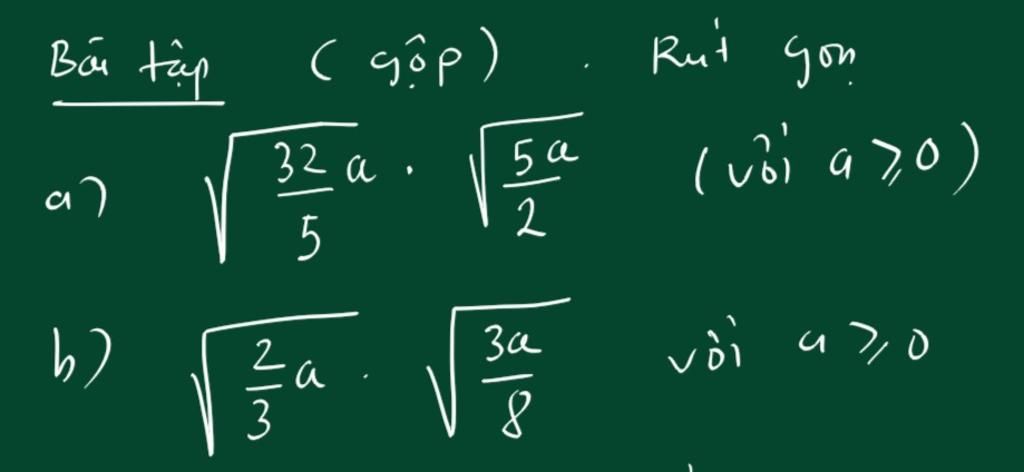 Bài tập (gộp). Rút gọn
a) √(32/5 a) . √(5a/2) (với a ⩾ 0)
b) √(2/3 a) . √(3a/8) với a ⩾ 0